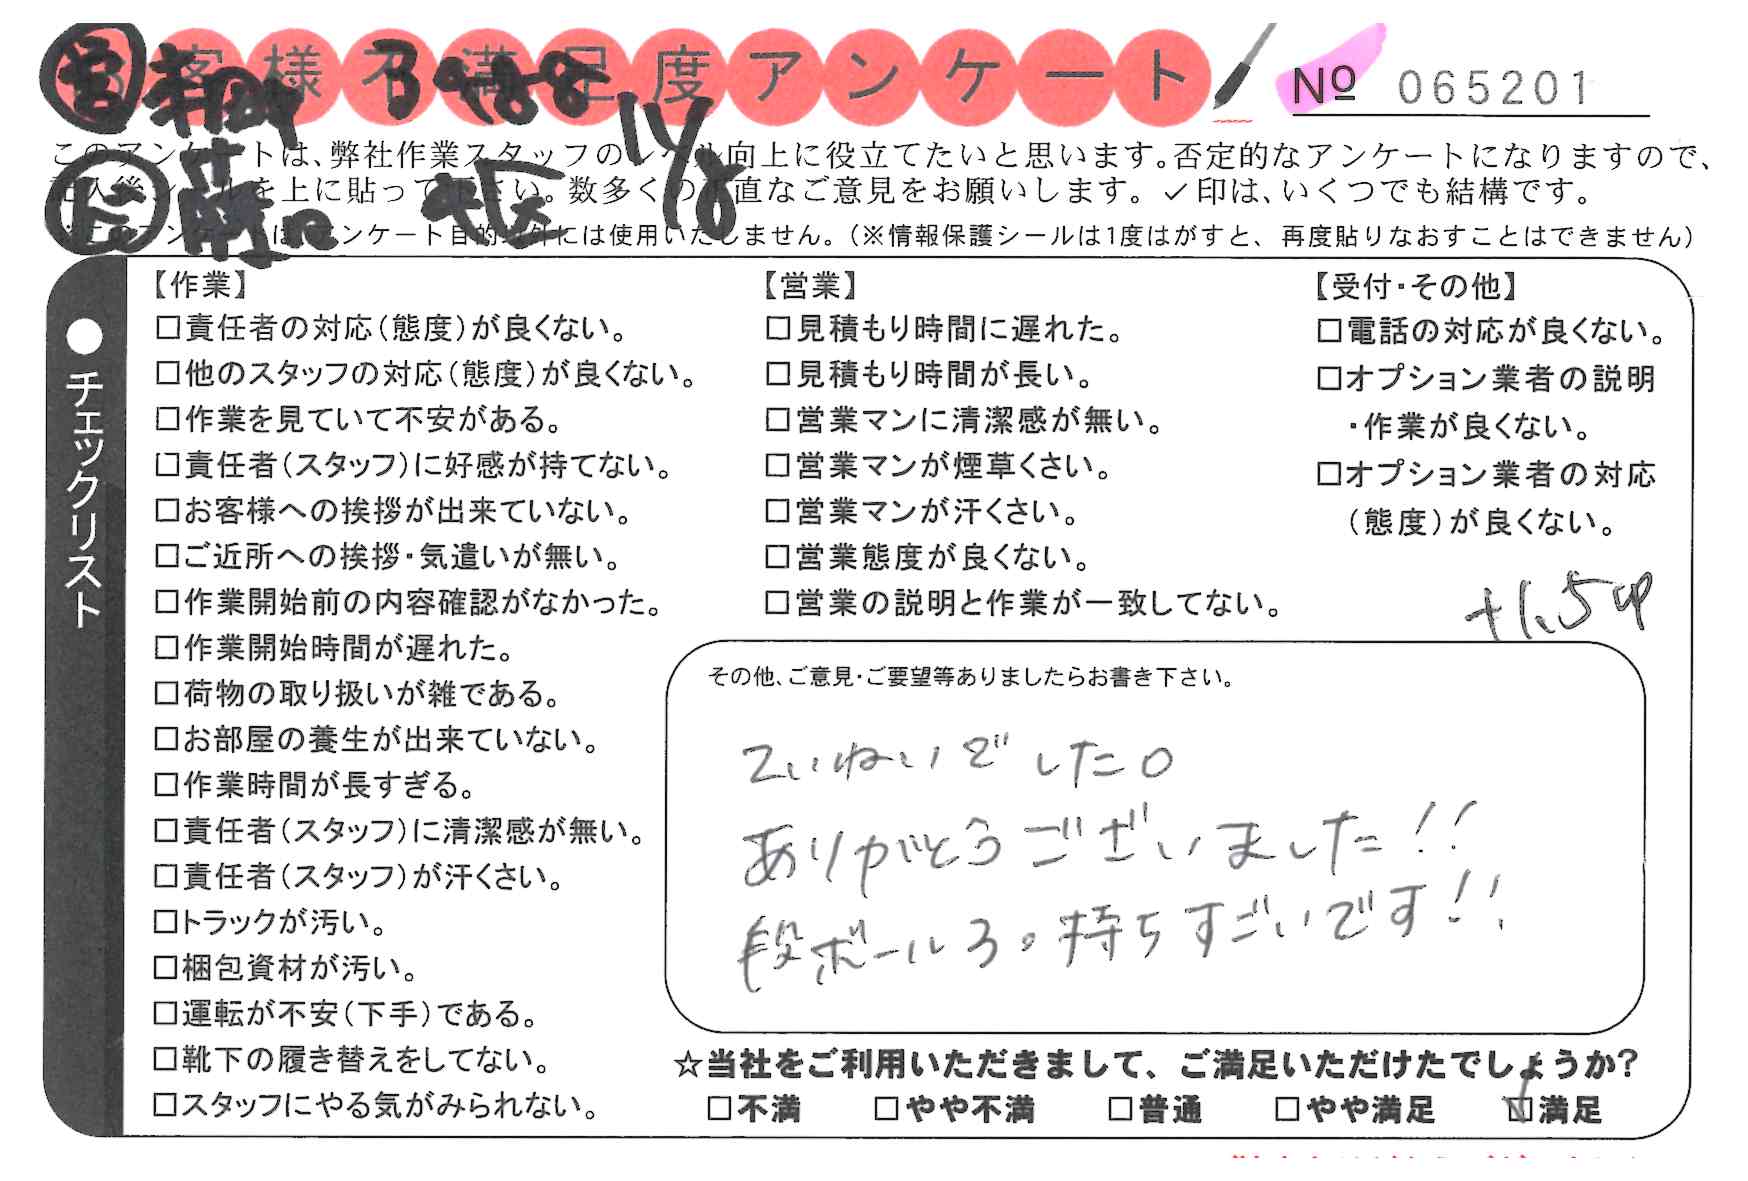 お客様不満足度アンケート
№ 065201
このアンケートは、弊社作業スタッフのレベル向上に役立てたいと思います。否定的なアンケートになりますので、
記入後シールを上に貼って下さい。数多くの正直なご意見をお願いします。✓印は、いくつでも結構です。
アンケートは、アンケート目的以外には使用いたしません。（※情報保護シールは1度はがすと、再度貼りなおすことはできません）
●チェックリスト
【作業】
□責任者の対応（態度）が良くない。
□他のスタッフの対応（態度）が良くない。
□作業を見ていて不安がある。
□責任者（スタッフ）に好感が持てない。
□お客様への挨拶が出来ていない。
□ご近所への挨拶・気遣いが無い。
□作業開始前の内容確認がなかった。
□作業開始時間が遅れた。
□荷物の取り扱いが雑である。
□お部屋の養生が出来ていない。
□作業時間が長すぎる。
□責任者（スタッフ）に清潔感が無い。
□責任者（スタッフ）が汗くさい。
□トラックが汚い。
□梱包資材が汚い。
□運転が不安（下手）である。
□靴下の履き替えをしてない。
□スタッフにやる気がみられない。
【営業】
□見積もり時間に遅れた。
□見積もり時間が長い。
□営業マンに清潔感が無い。
□営業マンが煙草くさい。
□営業マンが汗くさい。
□営業態度が良くない。
□営業の説明と作業が一致してない。
【受付・その他】
□電話の対応が良くない。
□オプション業者の説明
・作業が良くない。
□オプション業者の対応
（態度）が良くない。
その他、ご意見・ご要望等ありましたらお書き下さい。
ていねいでした。
ありがとうございました!!
段ボール3コ持ちすごいです!!
☆当社をご利用いただきまして、ご満足いただけたでしょうか?
□不満 □やや不満 □普通 □やや満足 ☑満足